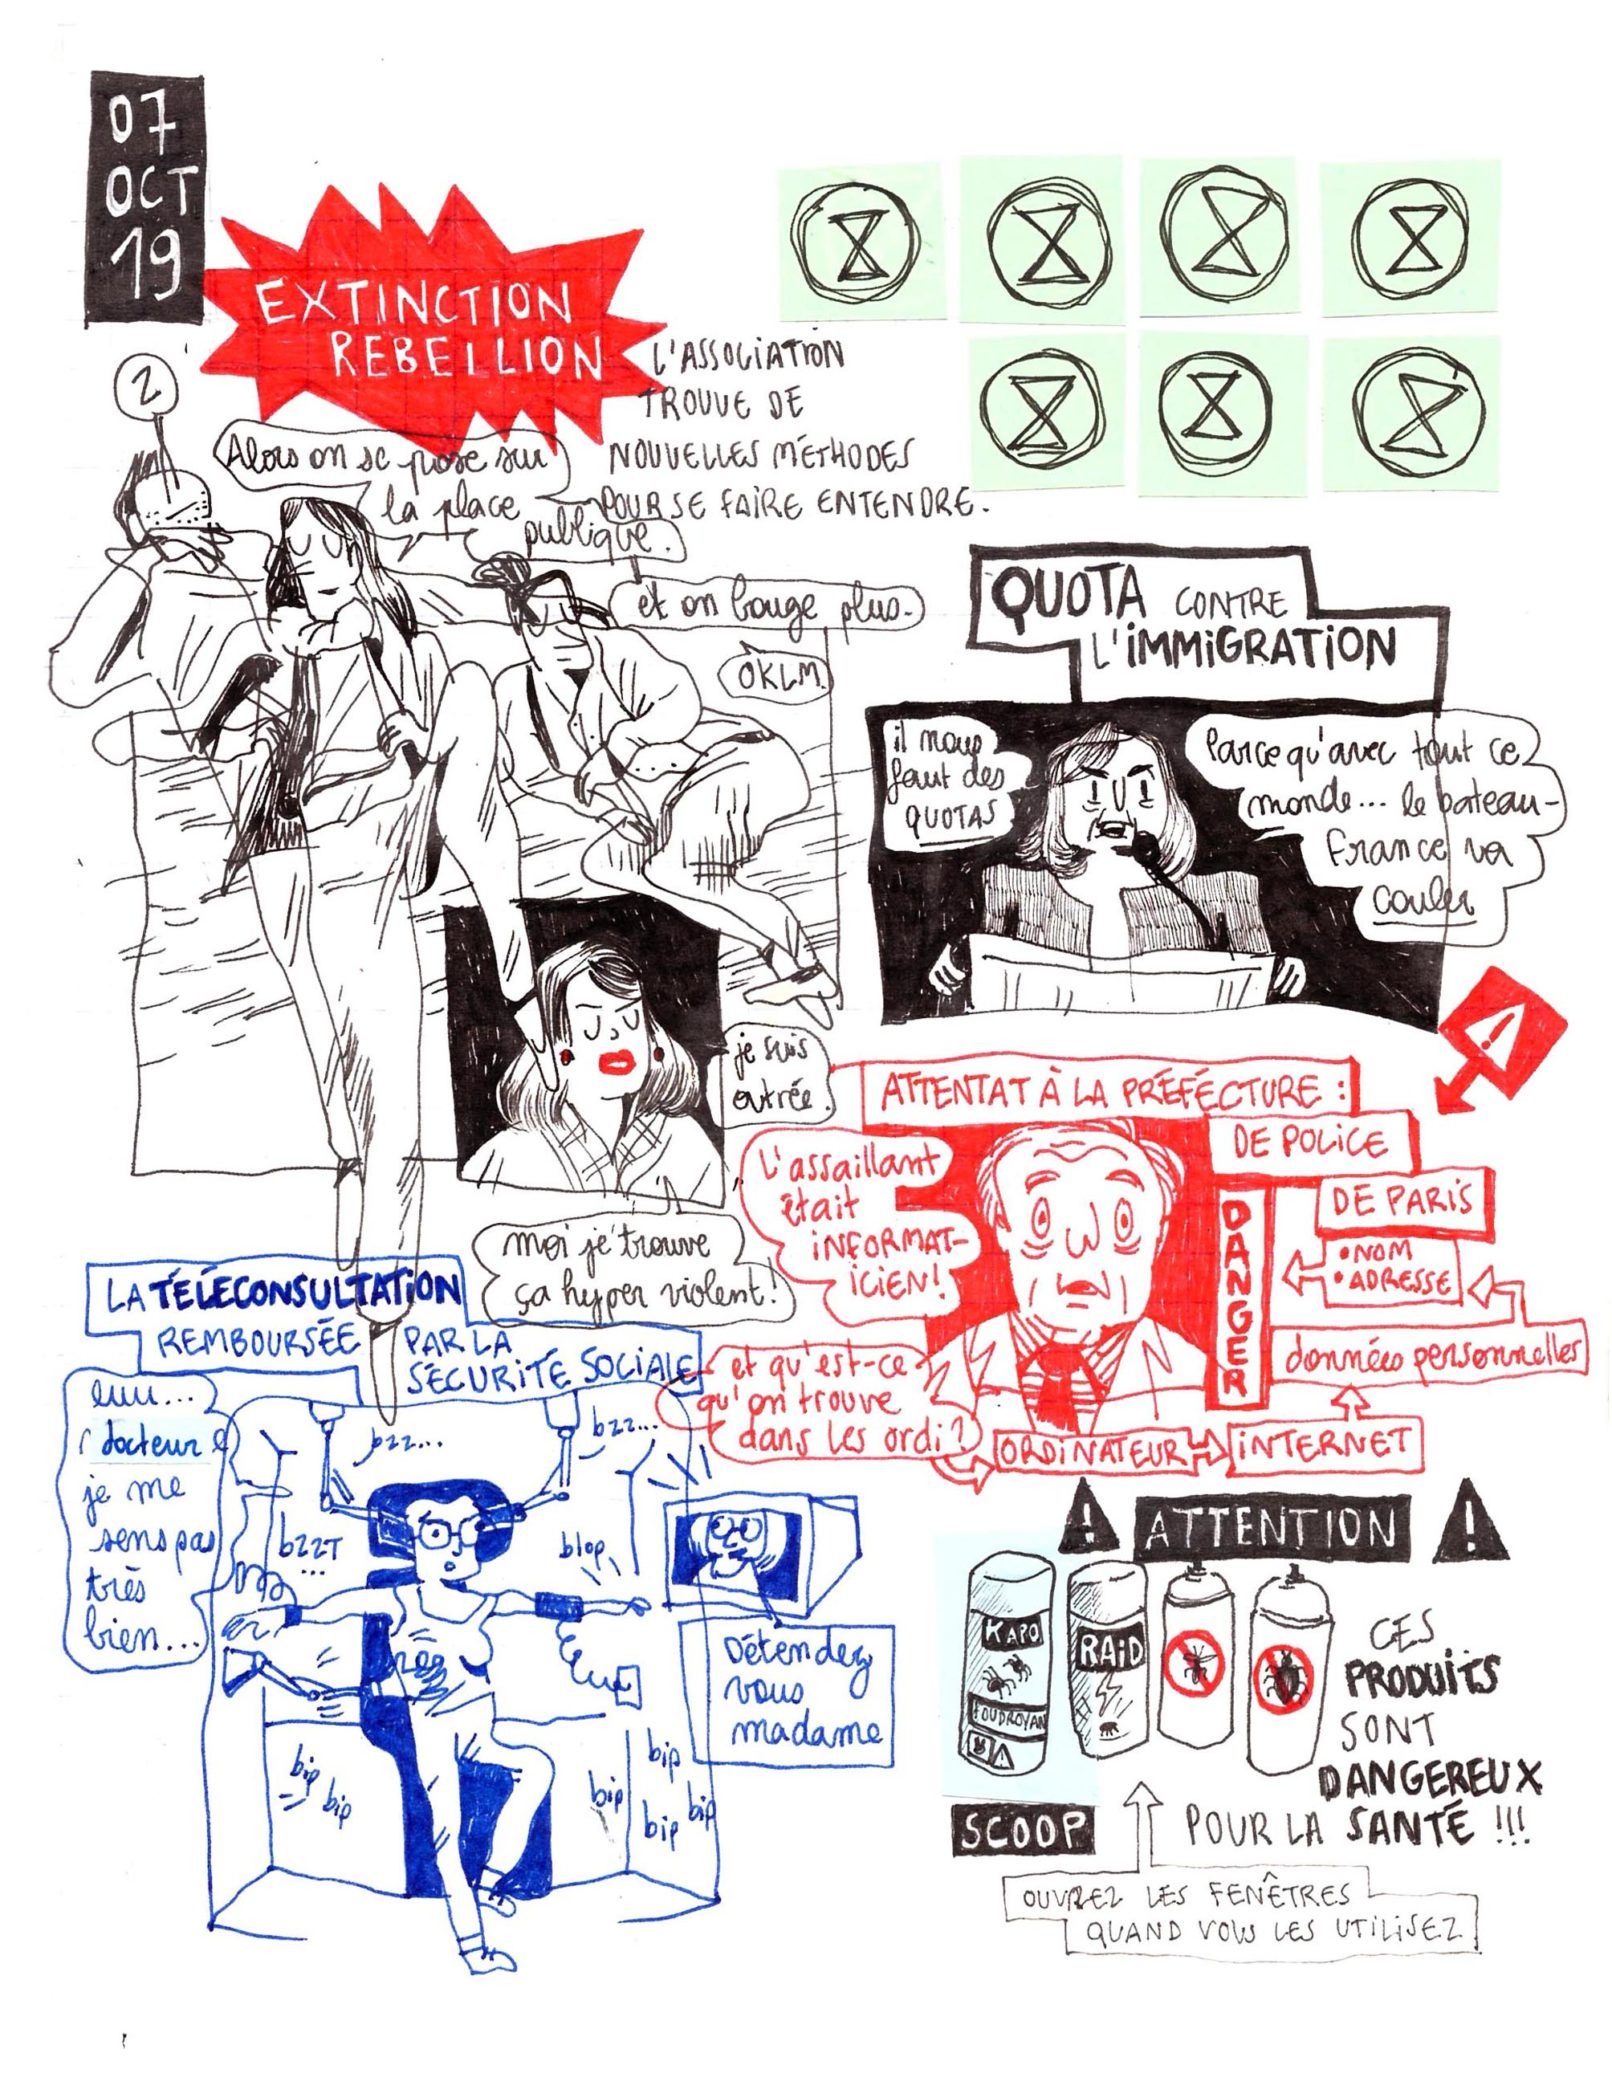 07
OCT
19
EXTINCTION
REBELLION
L'ASSOCIATION
TROUVE DE
NOUVELLES MÉTHODES
POUR SE FAIRE ENTENDRE.
Z
Alors on se pose sur
la place
publique.
et on bouge plus.
OKLM
je suis
outrée.
moi je trouve
ça hyper violent!
QUOTA CONTRE
L'IMMIGRATION
il nous
faut des
QUOTAS
Parce qu'avec tout ce
monde... le bateau-
France va
couler
ATTENTAT À LA PRÉFÉCTURE :
DE POLICE
DE PARIS
L'assaillant
était
INFORMAT-
ICIEN!
et qu'est-ce
qu'on trouve
dans les ordi?
ORDINATEUR
INTERNET
données personnelles
• NOM
• ADRESSE
DANGER
!
LA TÉLÉCONSULTATION
REMBOURSÉE PAR LA
SÉCURITÉ SOCIALE
euu...
docteur
je me
sens pas
très
bien...
bzz...
bzz...
bzzT
...
blop
Détendez
vous
madame
bip
bip
bip
bip
bip
bip
! ATTENTION !
KAPO
FOUDROYAN
RAID
CES
PRODUITS
SONT
DANGEREUX
POUR LA SANTÉ !!!
SCOOP
OUVREZ LES FENÊTRES
QUAND VOUS LES UTILISEZ